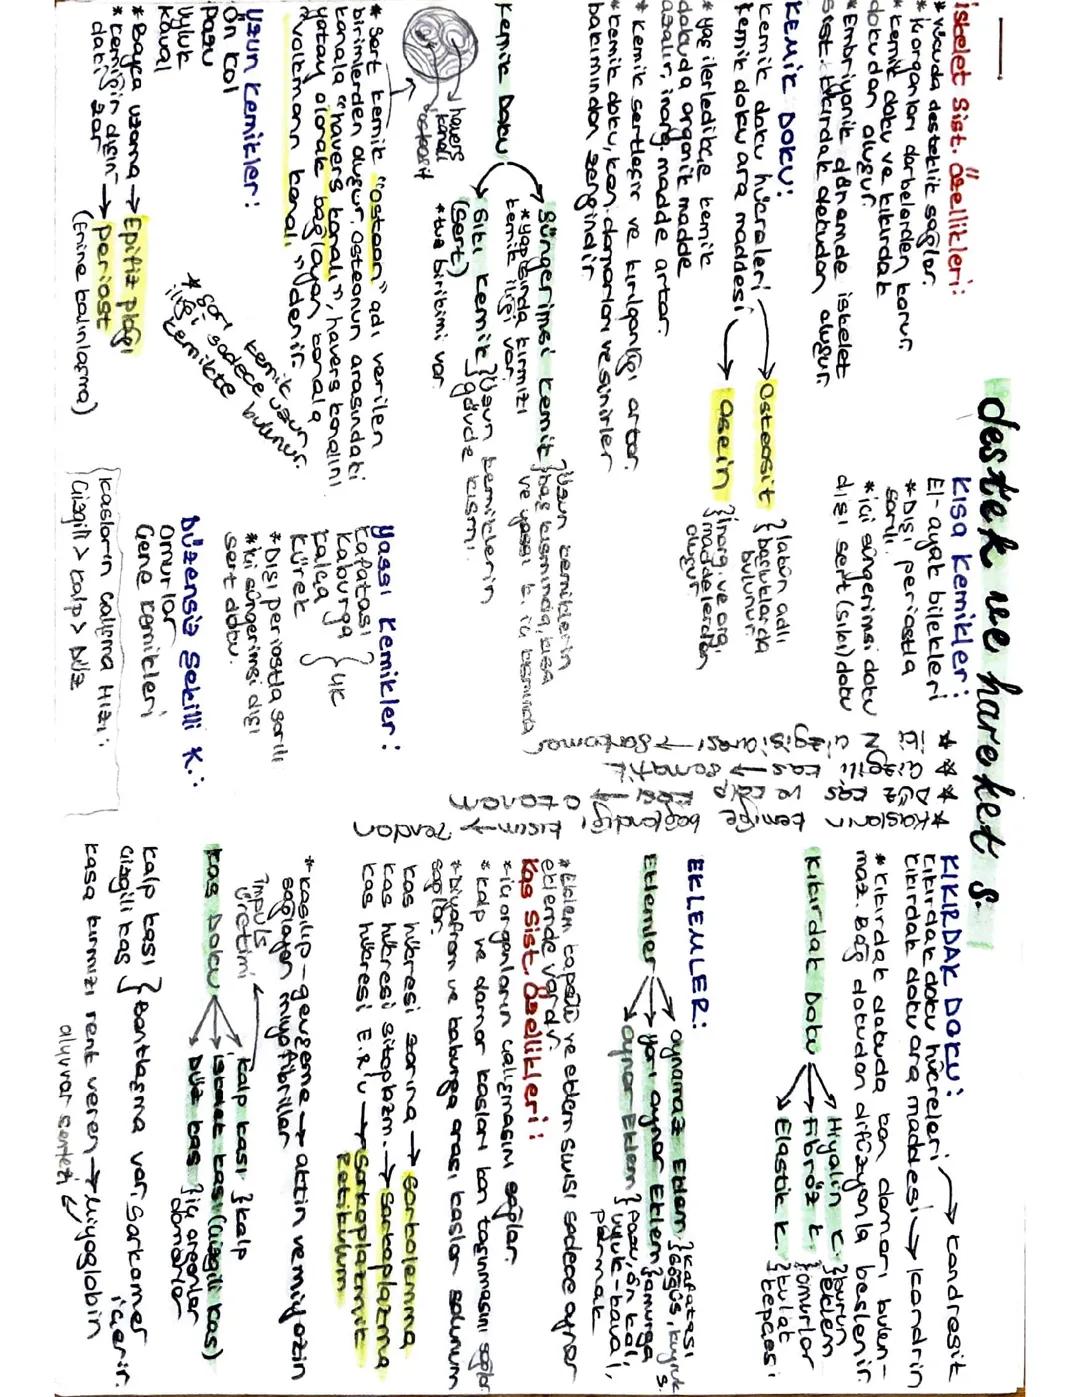 destek ve hareket s.
iskelet Sist. Özellikleri:
* vücuda desteklik sağlar.
* iç organları darbelerden korur.
* kemik doku ve kıkırdak
dokudan oluşur.
* Embriyonik dönemde iskelet
sist. kıkırdak dokudan oluşur.
KEMİK DOKU:
kemik doku hücreleri → Osteosit } lakün adlı
boşluklarda
bulunur
kemik doku ara maddesi → Osein } inorg. ve org.
maddelerden
oluşur
* yaş ilerledikçe kemik
dokuda organik madde
azalır, inorg. madde artar.
* kemik sertleşir ve kırılganlığı artar.
* kemik doku, kan damarları ve sinirler
bakımından zengindir.
kemik Doku
Süngerimsi kemik } uzun kemiklerin
baş kısmında, kısa
ve yassı k. iç kısmında
* yapısında kırmızı
kemik iliği var.
Sıkı kemik } Uzun kemiklerin
gövde kısmı.
(Sert)
* tuz birikimi var.
havers
kanalı
osteosit
* Sert kemik "osteon" adı verilen
birimlerden oluşur. osteonun arasındaki
kanala "havers kanalı", havers kanalını
yatay olarak bağlayan kanala
"volkmann kanalı" denir.
Uzun kemikler:
Ön kol
Pazu
Uyluk
kaval
* sarı kemik
iliği sadece uzun
kemikte bulunur.
* Boyca uzama → Epifiz plağı
* kemiğin dışın- → periost
daki zar
(Enine kalınlaşma)
Kısa Kemikler:
El-ayak bilekleri
* Dışı periostla
sarılı.
* içi süngerimsi doku
dışı sert (sıkı) doku
Yassı kemikler:
kafatası
kaburga
kalça
kürek
} 4K
* Dışı periostla sarılı
* içi süngerimsi dışı
sert doku.
Düzensiz Şekilli K.:
omurlar
Çene kemikleri
kasların çalışma Hızı:
Çizgili > kalp > Düz
* çizgisi arası → Sarkomer
* Çizgili kas → somatik
* Düz kas ve kalp kası → otonom
* Kasların kemiğe bağlandığı kısım → Tendon
KIKIRDAK DOKU:
kıkırdak doku hücreleri → kondrosit
kıkırdak doku ara maddesi → kondrin
* kıkırdak dokuda kan damarı bulun-
maz. Bağ dokudan difüzyonla beslenir.
kıkırdak Doku
Hiyalin k. } burun
eklem
Fibröz k. } omurlar
Elastik k. } kulak
kepçesi
EKLEMLER:
Eklemler
oynamaz Eklem } kafatası
göğüs, kuyruk s.
yarı oynar Eklem } omurga
oynar Eklem } pazu, ön kol,
uyluk-kaval,
parmak
* Eklem kapsülü ve eklem sıvısı sadece oynar
eklemde vardır.
Kas Sist. Özellikleri:
* iç organların çalışmasını sağlar.
* kalp ve damar kasları kan taşınmasını sağlar
* Diyafram ve kaburga arası kaslar solunum
sağlar.
kas hücresi zarına → Sarkolemma
kas hücresi sitoplazm. → Sarkoplazma
kas hücresi E.R'u → Sarkoplazmik
Retikulum
* kasılıp-gevşeme → aktin ve miyozin
sağlayan miyofibriller
impuls
üretimi
kas Doku
kalp kası } kalp
iskelet kası (Çizgili kas)
Düz kas } iç organlar
damarlar
kalp kası
Çizgili kas
} Bantlaşma var. Sarkomer
içerir.
kasa kırmızı renk veren → Miyoglobin